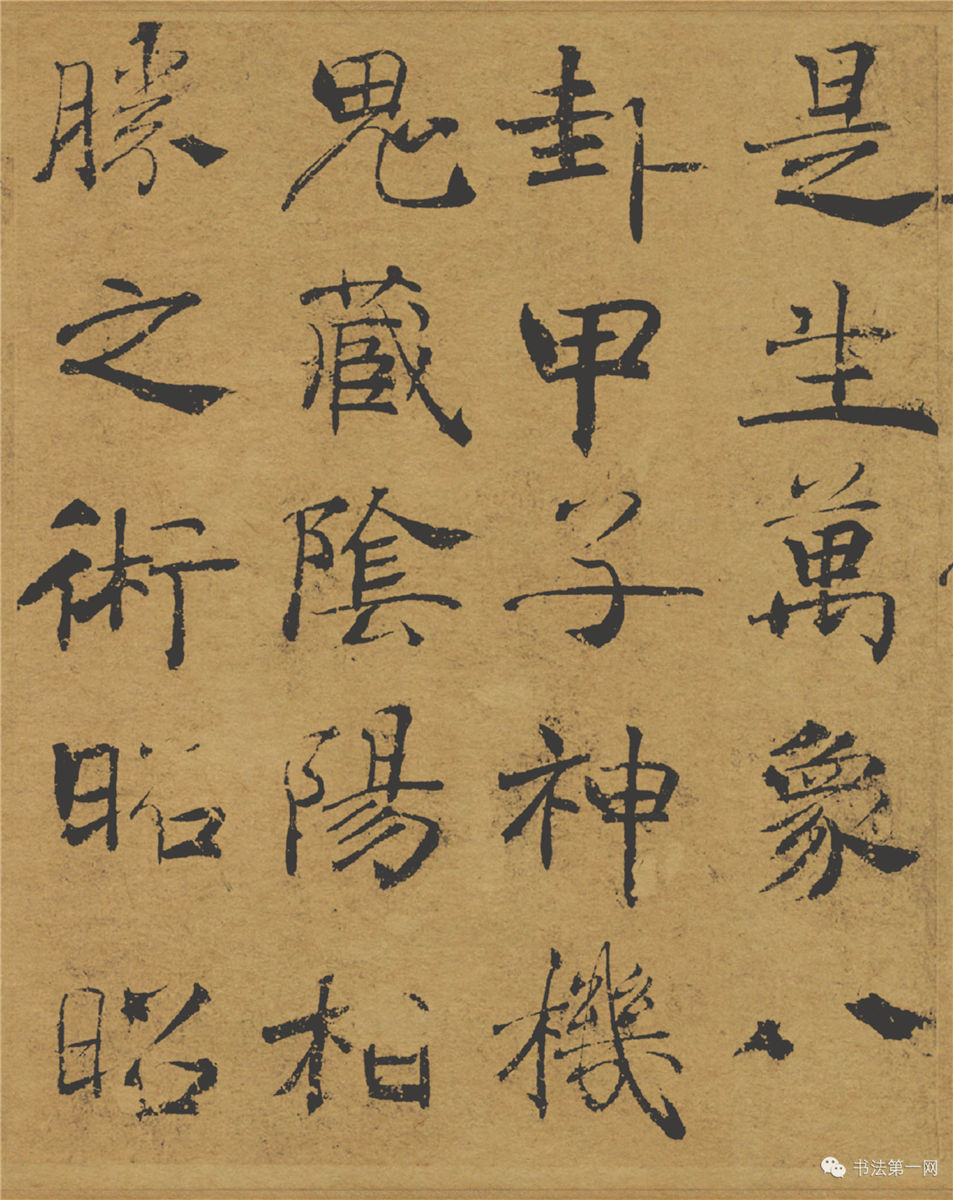 是生萬象八
卦甲子神機
鬼藏陰陽相
勝之術昭昭
书法第一网